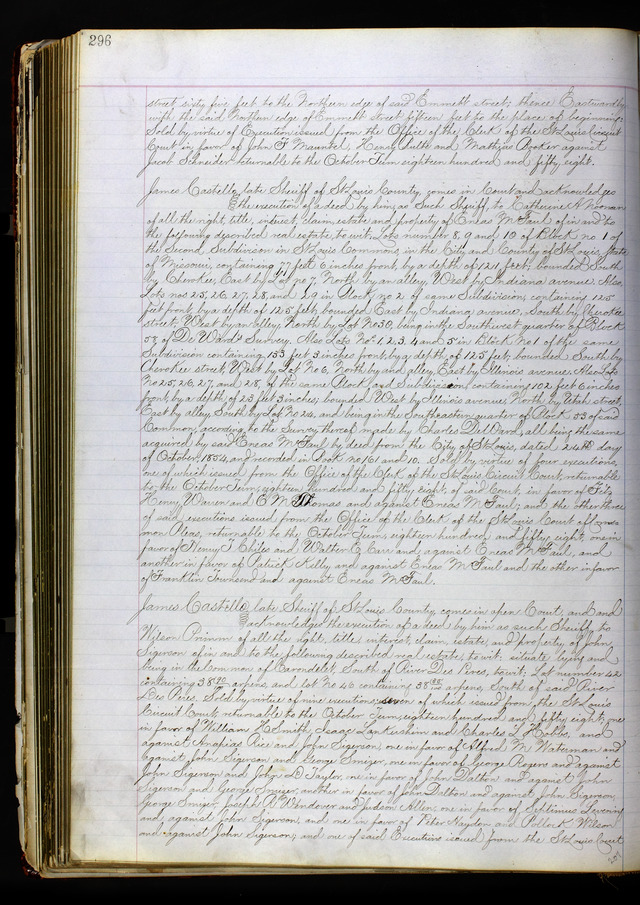 296
street, sixty five feet to the Northern edge of said Emmett street; thence Eastwardly
with the said Northern edge of Emmett Street fifteen feet to the place of beginning.
Sold by virtue of Execution issued from the Office of the Clerk of the St Louis Circuit
Court in favor of John F Mauntel, Henry and Mathias against
Jacob Schneider returnable to the October Term eighteen hundred and fifty eight.
James Castello, late Sheriff of St Louis County, comes in Court and acknowledges
the execution of a deed by him, as Such Sheriff, to Katharine N Norman
of all the right, title, interest, claim, estate and property of Eneas McFaul of in and to
the following described real estate, to wit; Lots number 8, 9 and 10 of Block no 1 of
the Second Subdivision in St Louis Commons, in the City and County of St Louis, State
of Missouri, containing 77 feet 6 inches front, by a depth of 121 feet; bounded South
by Cherokee, East by Lot no 7, North by an alley, West by Indiana avenue. Also,
Lots nos 25, 26, 27, 28, and 29 in Block no 2 of same Subdivision, containing 125
feet front, by a depth of 125 feet; bounded East by Indiana avenue, South by Cherokee
street, West by an alley, North by Lot No 30, being in the Southwest quarter of Block
58 of De Ward's Survey. Also Lots No 1, 2, 3, 4 and 5 in Block No 1 of the same
Subdivision containing 153 feet 3 inches front, by a depth of 125 feet, bounded South by
Cherokee street, West by Lot No 6, North by and alley, East by Illinois avenue. Also Lots
No 25, 26, 27, and 28, of the same Block and Subdivision, containing 102 feet 6 inches
front, by a depth of 25 feet 3 inches; bounded West by Illinois avenue, North by Utah street,
East by alley, South by Lot No 24, and being in the Southeastern quarter of Block 53 of said
Common, according to the Survey thereof made by Charles DeWard, all being the same
acquired by said Eneas McFaul by deed from the City of St Louis, dated day
of October, 1854, and recorded in Book no 161 and 10. Sold by virtue of four executions,
one of which issued from the Office of the Clerk of the St Louis Circuit Court, returnable
to the October Term, eighteen hundred and fifty eight, of said Court, in favor of Fitz
Henry Warren and C M Thomas and against Eneas McFaul; and the other three
of said executions issued from the Office of the Clerk of the St Louis Court of Com-
mon Pleas, returnable to the October Term, eighteen hundred and fifty eight, one in
favor of Henry T Chiles and Walter C Carr and against Eneas McFaul, and
another in favor of Patrick Kelly and against Eneas McFaul and the other in favor
of Franklin Townsend and against Eneas McFaul.
James Castello, late Sheriff of St Louis County, comes in open Court, and
acknowledges the execution of a deed by him as such Sheriff, to
Wilson Primm of all the right, title, interest, claim, estate, and property, of John
Sigerson of in and to the following described real estate, to wit: situate lying and
being in the Common of Carondelet, South of River Des Peres, to wit; Lot number 42
containing 38 arpens, and lot No 46 containing 38 arpens, South of said River
Des Peres. Sold by virtue of nine executions, seven of which issued from the St Louis
Circuit Court, returnable to the October Term, eighteen hundred and fifty eight; one
in favor of William H Smith, Isaac and Charles L Hobbs, and
against Rice and John Sigerson; one in favor of Alfred M Waterman and
against John Sigerson and George Smizer, one in favor of George Rogers and against
John Sigerson and John D Taylor, one in favor of John Dalton and against John
Sigerson and George Smizer, another in favor of John Dalton and against John Sigerson,
George Smizer, Joseph A Windover and Judson Allen; one in favor of Septimus
and against John Sigerson, and one in favor of Peter and Pollock Wilson
and against John Sigerson; and one of said Executions issued from the St Louis Court